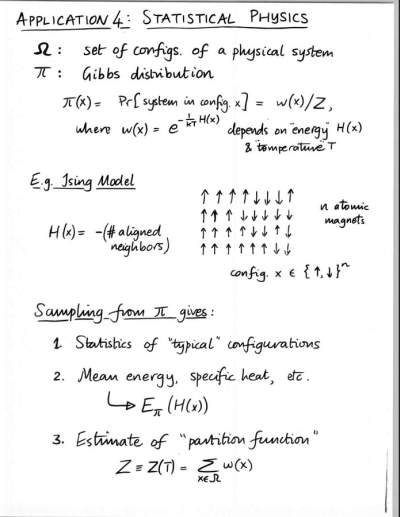 APPLICATION 4: STATISTICAL PHYSICS
Ω: set of configs. of a physical system
π: Gibbs distribution
π(x) = Pr[system in config. x] = w(x)/Z,
where w(x) = e^{-\frac{1}{kT}H(x)} depends on energy H(x)
& temperature T
E.g. Ising Model
↑ ↑ ↑ ↑ ↓ ↓ ↓ ↑
↑ ↑ ↑ ↓ ↓ ↓ ↓ ↓
↑ ↑ ↑ ↑ ↓ ↓ ↑ ↓
↑ ↑ ↑ ↑ ↑ ↑ ↓ ↓
n atomic
magnets
H(x) = -(# aligned
neighbors)
config. x ∈ {↑,↓}ⁿ
Sampling from π gives:
1. Statistics of "typical" configurations
2. Mean energy, specific heat, etc.
↳ E_π(H(x))
3. Estimate of "partition function"
Z ≡ Z(T) = Σ_{x∈Ω} w(x)